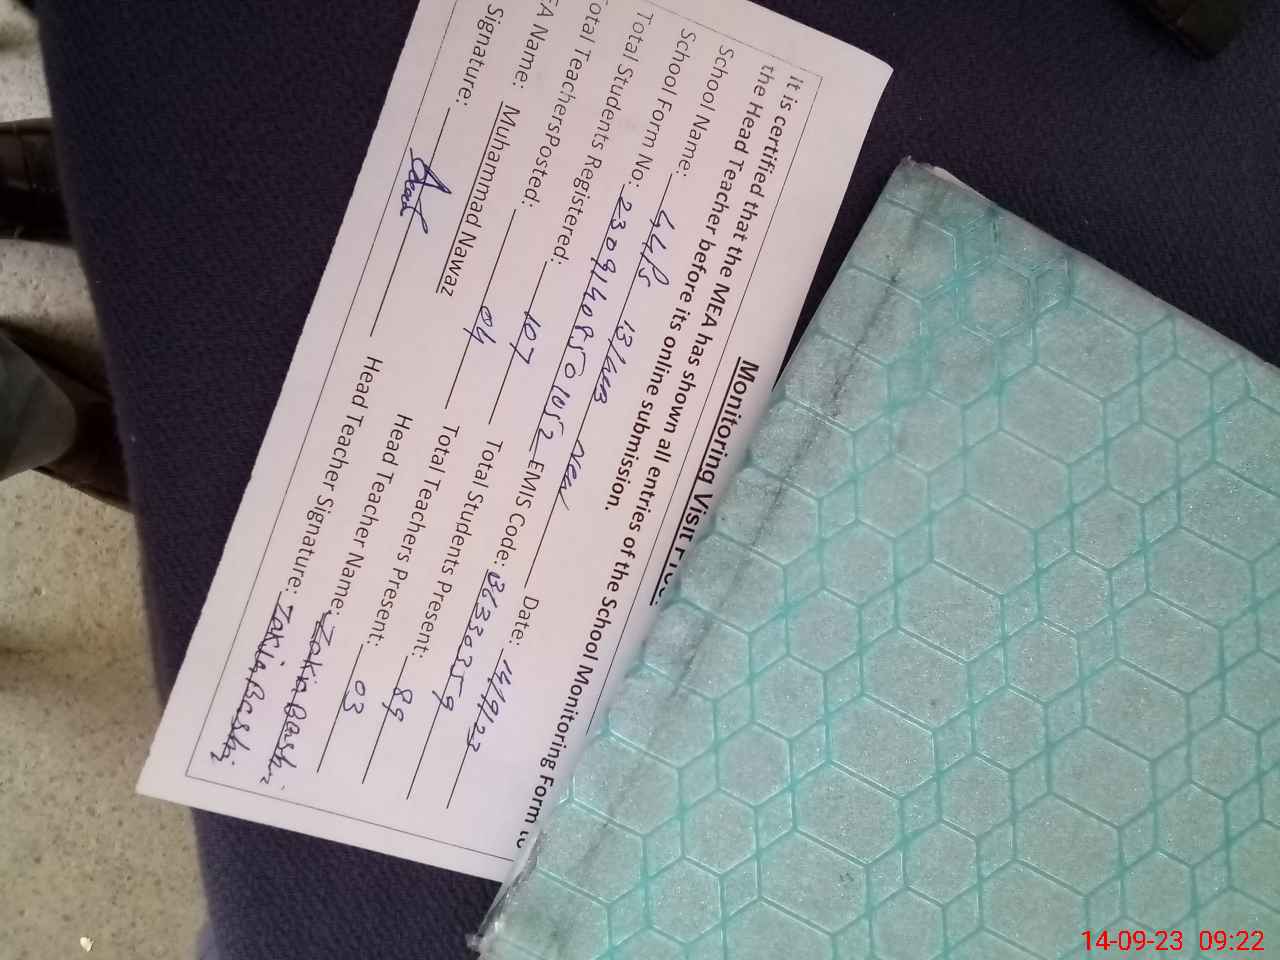 Monitoring Visit
It is certified that the MEA has shown all entries of the School Monitoring Form to
the Head Teacher before its online submission.
School Name: GGPS
School Form No: Date: 14/9/23
Total Students Registered: 107 EMIS Code: 36330359
Total Teachers Posted: 04 Total Students Present: 89
EA Name: Muhammad Nawaz Total Teachers Present: 03
Signature: Head Teacher Name: Zakia Bashir
Head Teacher Signature: Zakia Bashir
14-09-23 09:22